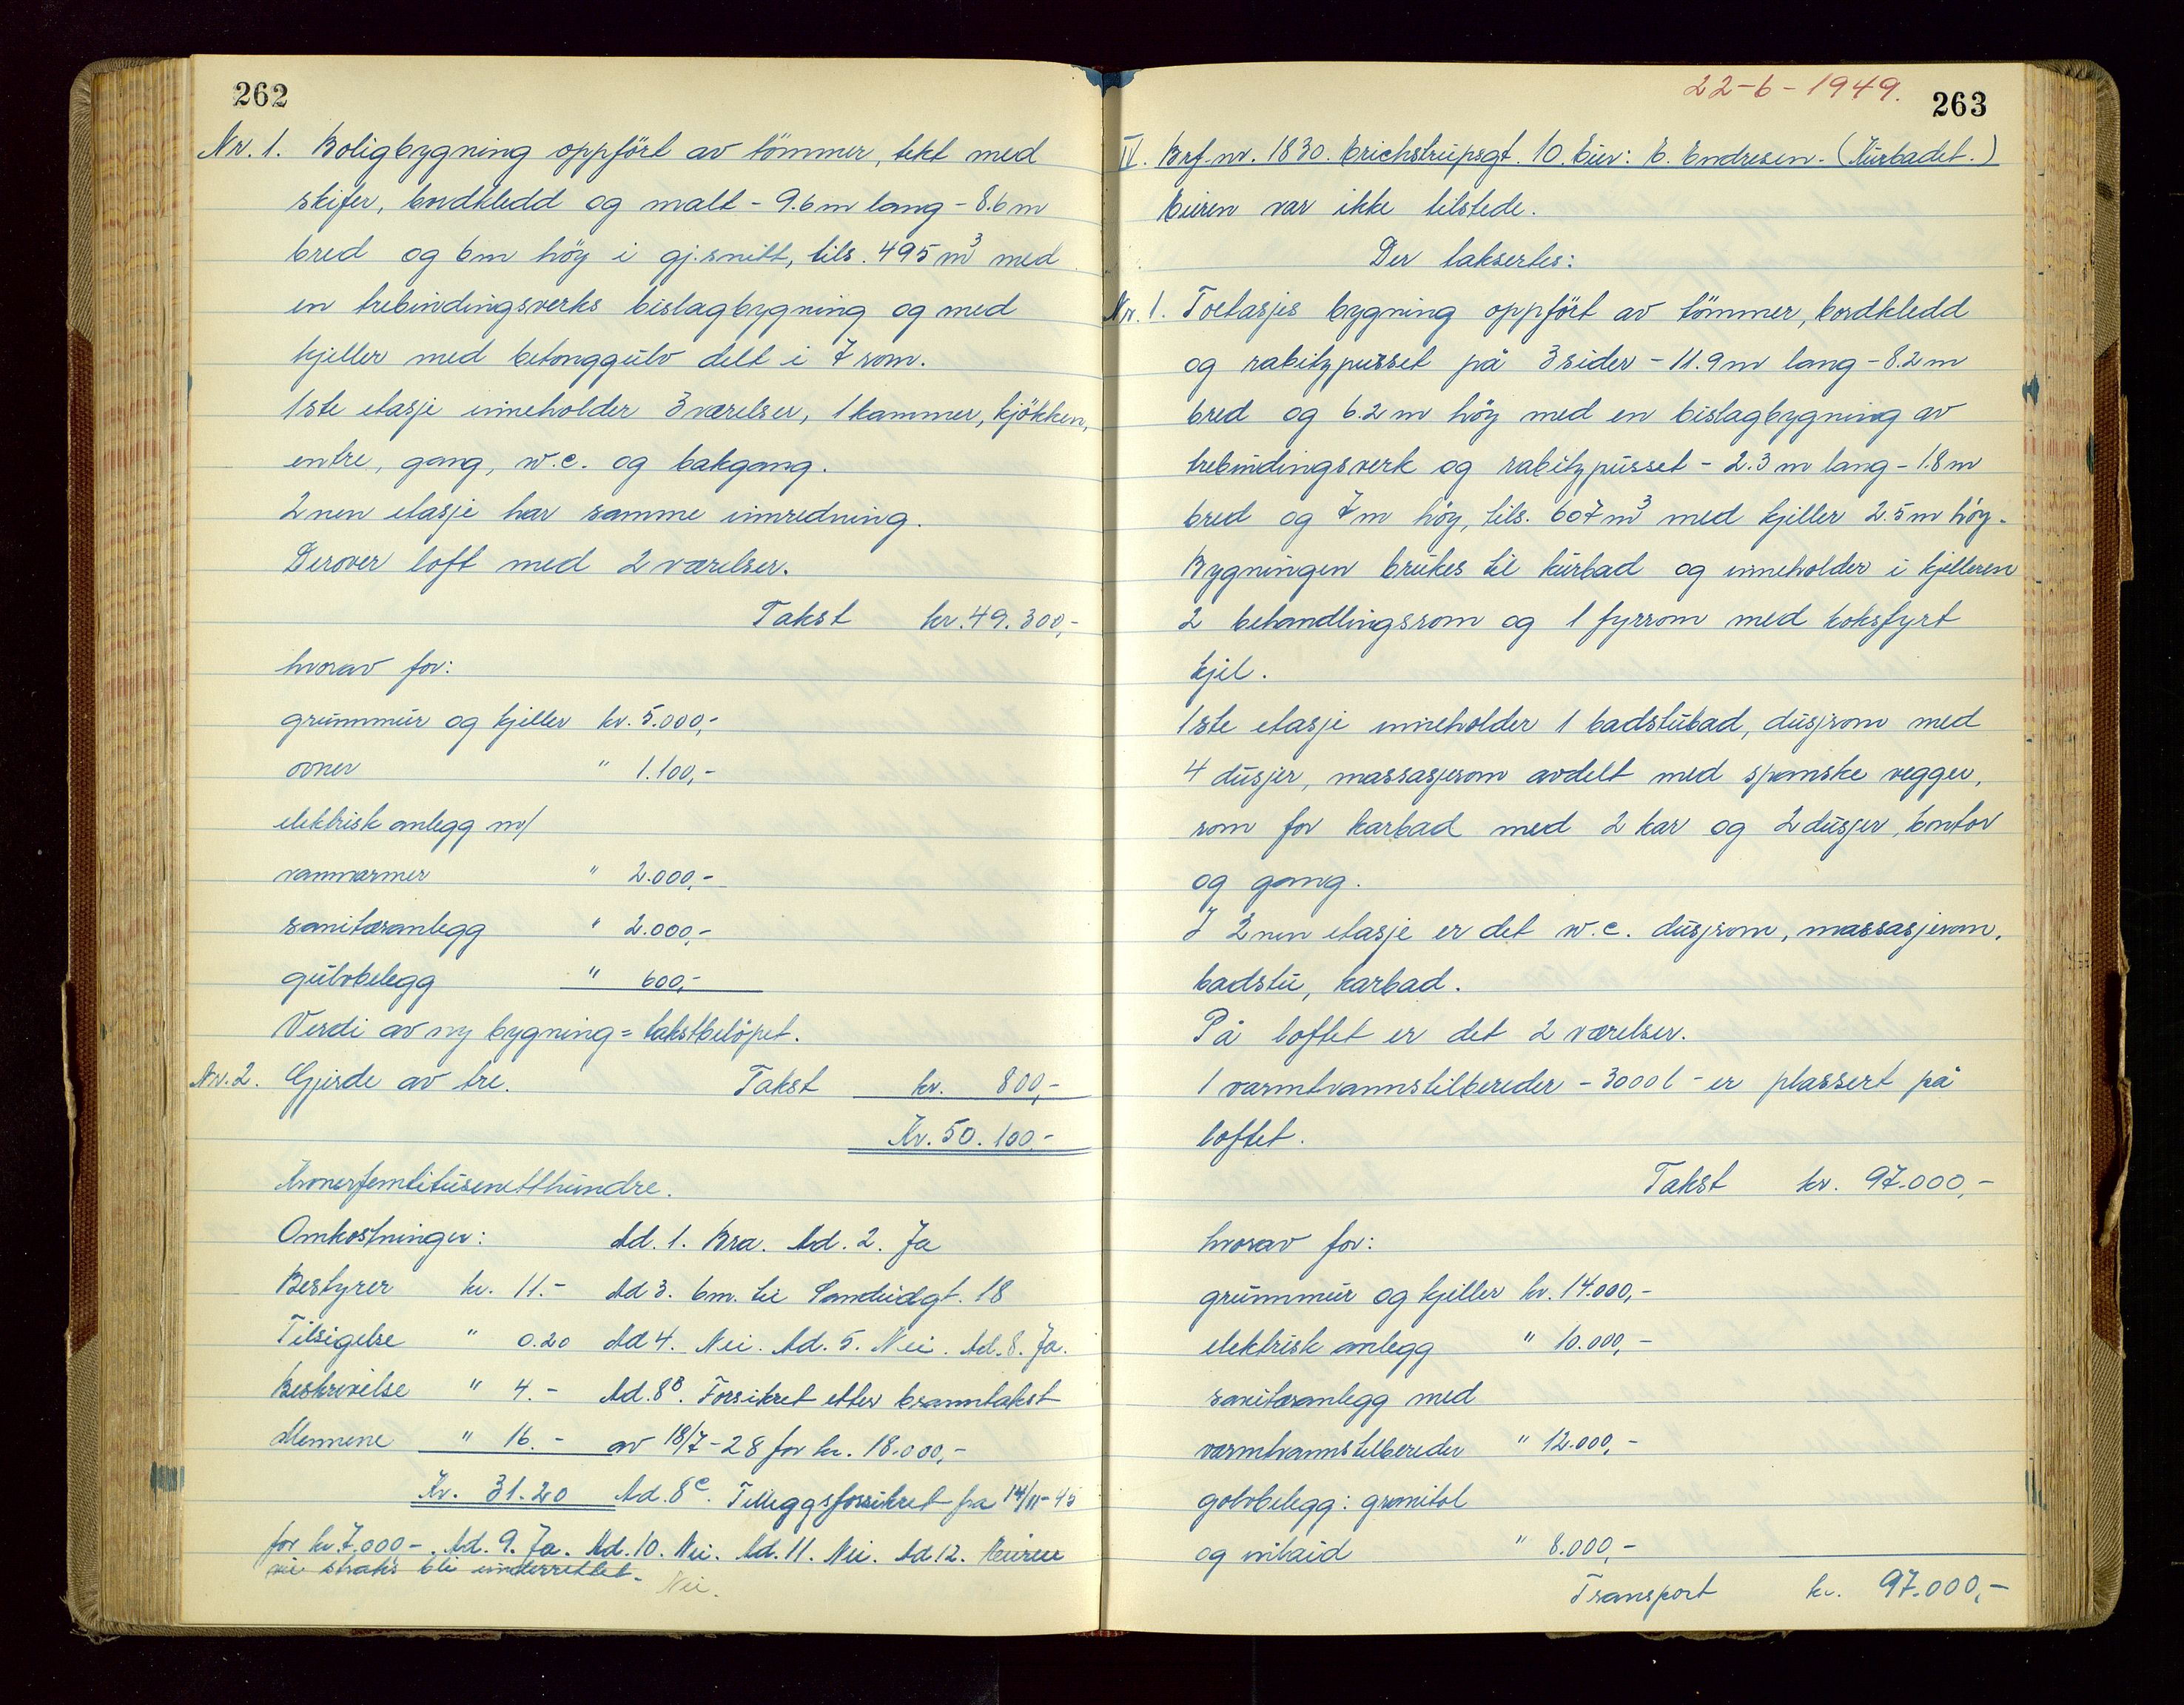 262
Nr. 1. Boligbygning oppfört av tömmer, tekt med
skifer, bordkledd og malt - 9.6 m lang - 8.6 m
bred og 6 m höy i gj.snitt, tils. 495 m³ med
en trebindingsverks bislagbygning og med
kjeller med betonggulv delt i 7 rom.
1ste etasje inneholder 3 værelser, 1 kammer, kjökken,
entre, gang, w.c. og bakgang.
2nen etasje har samme innredning.
Derover loft med 2 værelser.
Takst kr. 49.300,-
hvorav for:
grunnmur og kjeller kr. 5.000,-
ovner " 1.100,-
elektrisk anlegg m/
vannvarmer " 2.000,-
sanitæranlegg " 2.000,-
gulvbelegg " 600,-
Verdi av ny bygning = takstbelöpet.
Nr. 2. Gjerde av tre. Takst kr. 800,-
Kr. 50.100.-
Kronerfemtitusenetthundre.
Omkostninger: Ad. 1. Bra. Ad. 2. Ja
Bestyrer kr. 11.- Ad 3. 6m. til Sandeidgt. 18
Tilsigelse " 0.20 Ad 4. Nei. Ad. 5. Nei. Ad. 8. Ja.
Beskrivelse " 4.- Ad. 8ᴮ. Forsikret etter branntakst
Mennene " 16.- av 18/7-28 for kr. 18.000,-
Kr. 31.20 Ad. 8ᶜ. Tilleggsforsikret fra 14/11-45
for kr. 7.000-. Ad. 9. Ja. Ad. 10. Nei. Ad. 11. Nei. Ad 12. Eieren
vil straks bli underrettet. Nei.
22-6-1949.
263
IV. Brf. nr. 1830. Erichstrupsgt. 10. Eier: E. Endresen. (Kurbadet.)
Eieren var ikke tilstede.
Der taksertes:
Nr. 1. Toetasjes bygning oppfört av tömmer, bordkledd
og rabitzpusset på 3 sider - 11.9 m lang - 8.2 m
bred og 6.2 m höy med en bislagbygning av
trebindingsverk og rabitzpusset - 2.3 m lang - 1.8 m
bred og 7 m höy, tils. 607 m³ med kjeller 2.5 m höy.
Bygningen brukes til kurbad og inneholder i kjelleren
2 behandlingsrom og 1 fyrrom med koksfyrt
kjel.
1ste etasje inneholder 1 badstubad, dusjrom med
4 dusjer, massasjerom avdelt med spanske vegger,
rom for karbad med 2 kar og 2 dusjer, kontor
og gang.
I 2nen etasje er det w.c. dusjrom, massasjerom,
badstu, karbad.
På loftet er det 2 værelser.
1 varmtvannstilbereder - 3000 l - er plassert på
loftet.
Takst kr. 97.000,-
hvorav for:
grunnmur og kjeller kr. 14.000,-
elektrisk anlegg " 10.000,-
sanitæranlegg med
varmtvannstilbereder " 12.000,-
golvbelegg: granitol
og inlaid " 8.000,-
Transport kr. 97.000,-